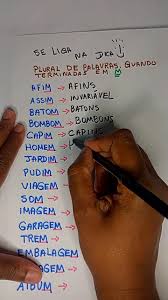 SE LIGA NA DICA
PLURAL DE PALAVRAS, QUANDO
TERMINADAS EM M
AFIM → AFINS
ASSIM → INVARIÁVEL
BATOM → BATONS
BOMBOM → BOMBONS
CAPIM → CAPINS
HOMEM →
JARDIM →
PUDIM →
VIAGEM
SOM →
IMAGEM
GARAGEM
TREM →
EMBALAGEM
ÁLBUM →